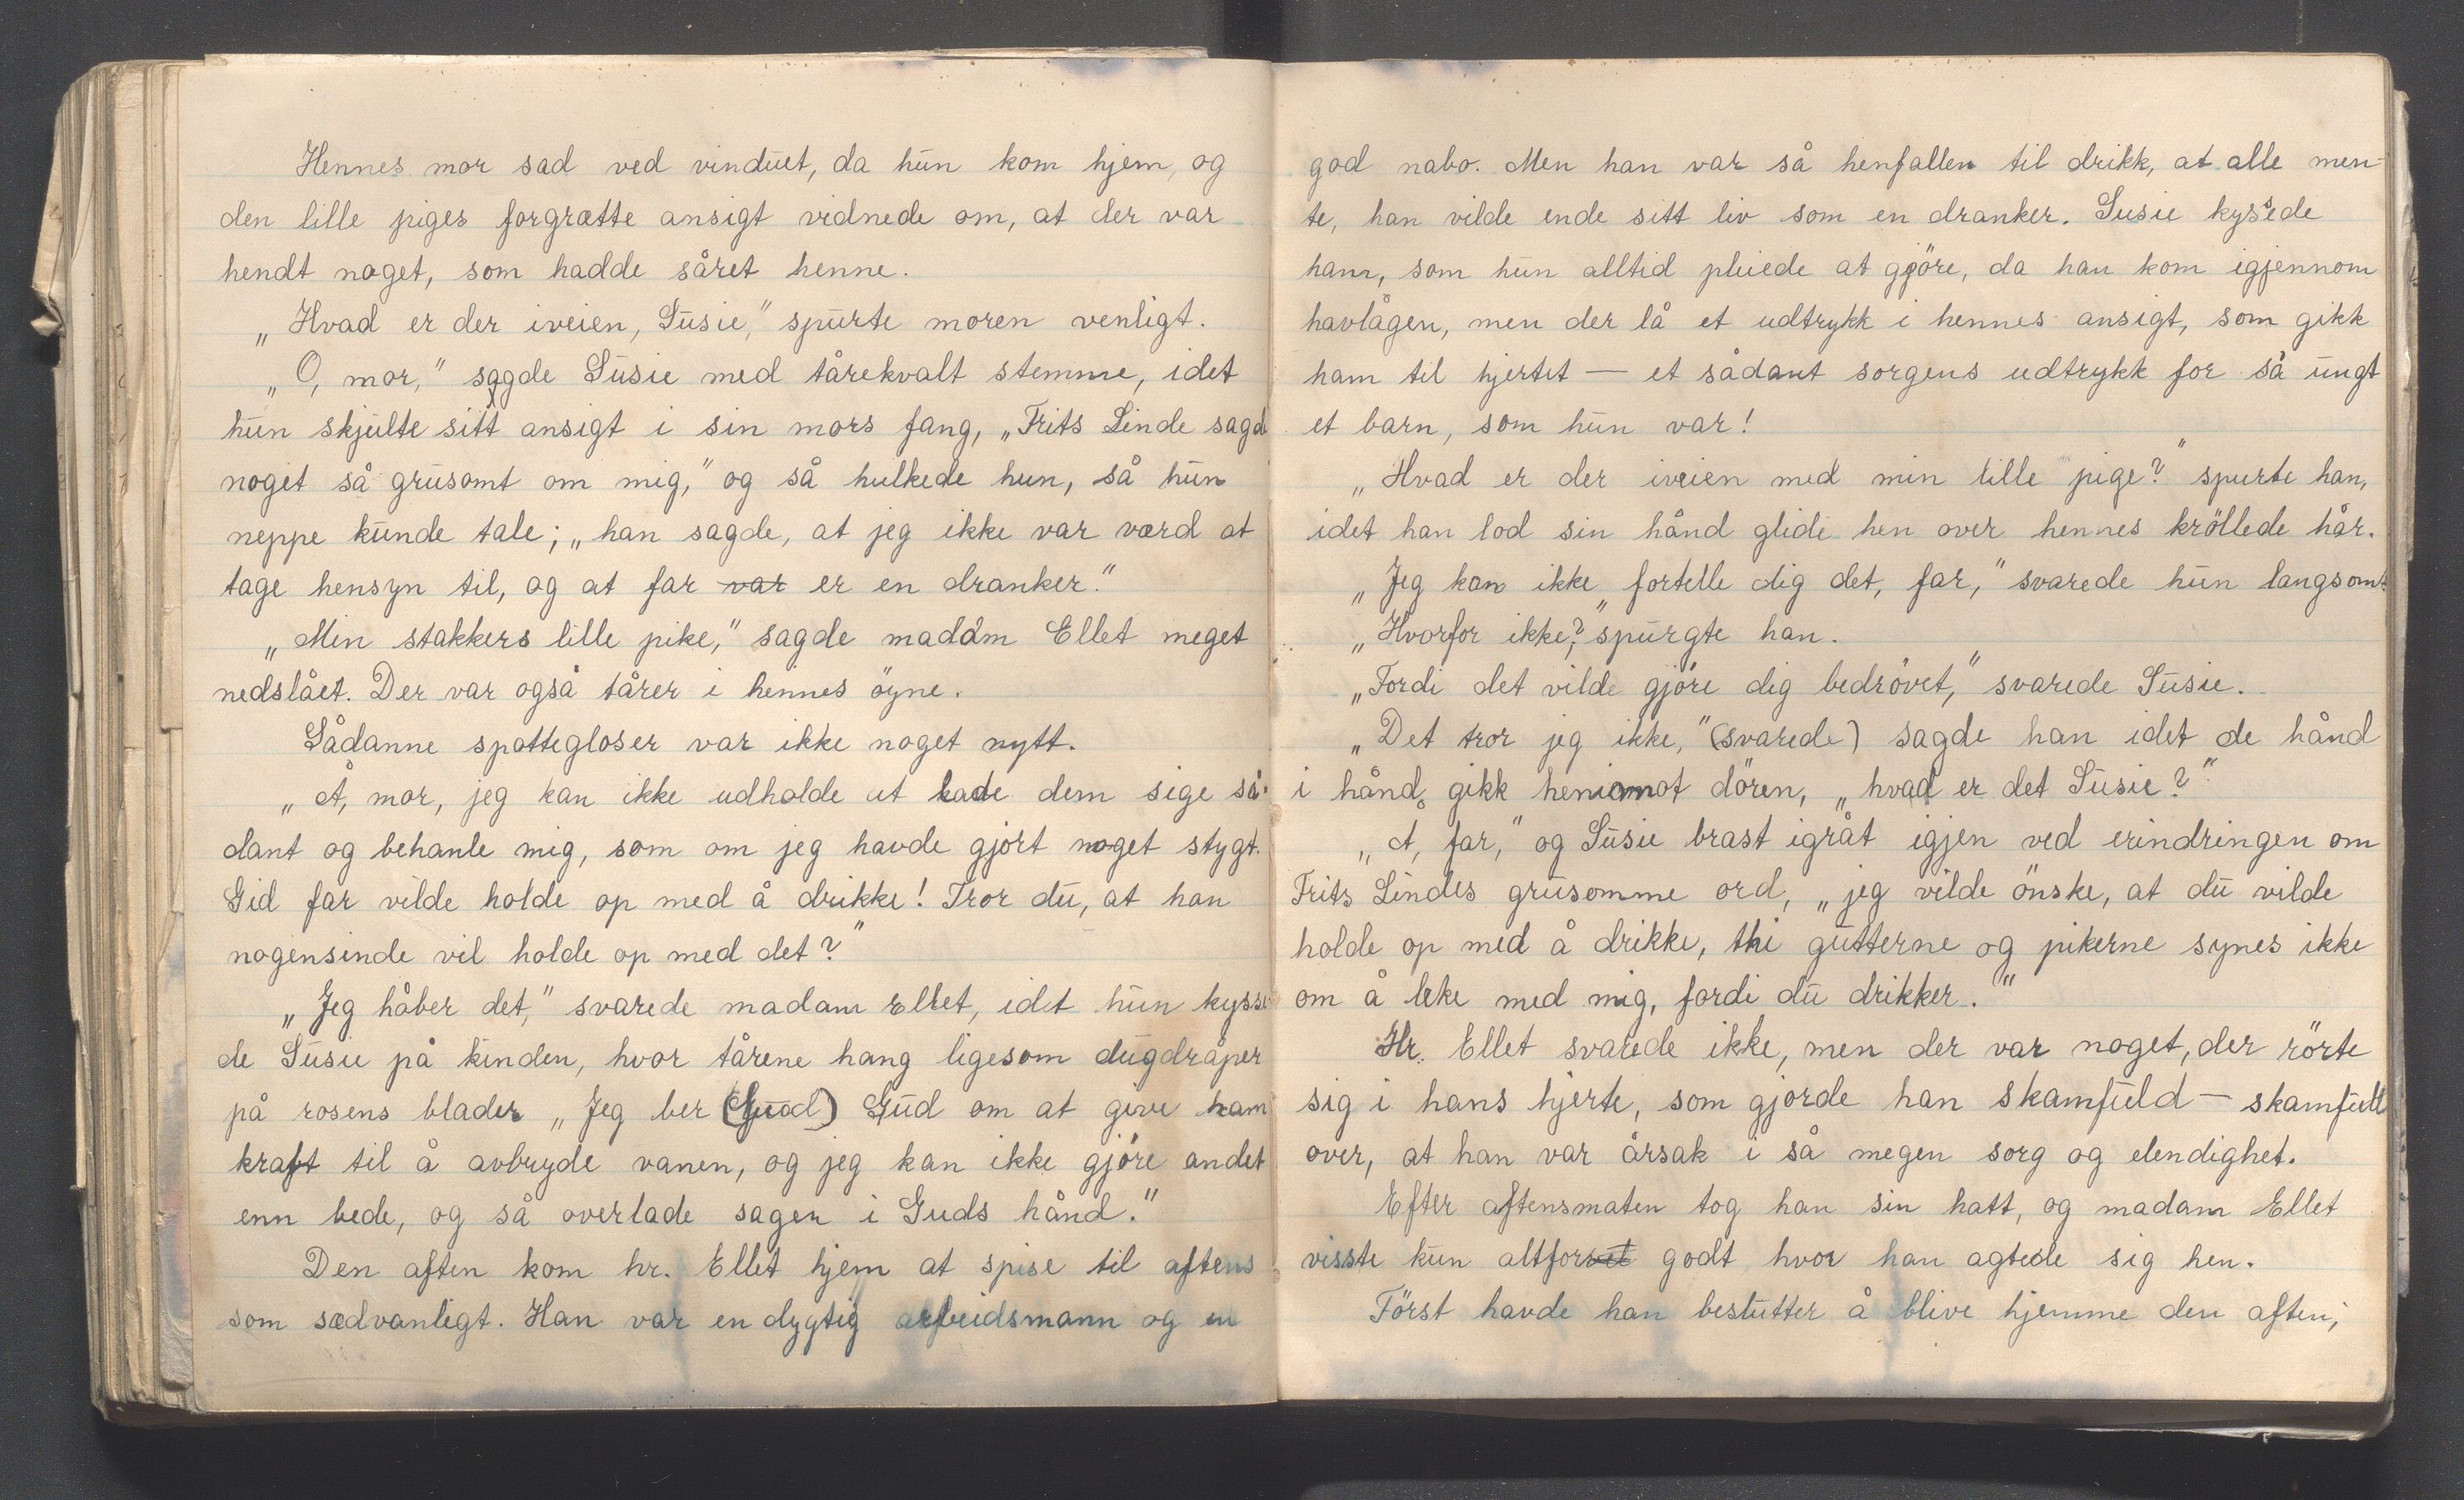 Hennes mor sad ved vinduet, da hun kom hjem, og
den lille piges forgrætte ansigt vidnede om, at der var
hendt noget, som hadde såret henne.
„Hvad er der iveien, Susie," spurte moren venligt.
„O, mor," sagde Susie med tårekvalt stemme, idet
hun skjulte sitt ansigt i sin mors fang, „Frits Linde sagde
noget så grusomt om mig," og så hulkede hun, så hun
neppe kunde tale; „han sagde, at jeg ikke var værd at
tage hensyn til, og at far var er en dranker."
„Min stakkers lille pike," sagde madam Ellet meget
nedslået. Der var også tårer i hennes öyne.
Sådanne spottegloser var ikke noget nytt.
„Å, mor, jeg kan ikke udholde at lade dem sige så-
dant og behanle mig, som om jeg havde gjort noget stygt.
Gid far vilde holde op med å drikke! Tror du, at han
nogensinde vil holde op med det?"
„Jeg håber det," svarede madam Ellet, idet hun kysse-
de Susie på kinden, hvor tårene hang ligesom dugdråper
på rosens blader „Jeg ber (Gud) Gud om at give ham
kraft til å avbryde vanen, og jeg kan ikke gjöre andet
enn bede, og så overlade sagen i Guds hånd."
Den aften kom hr. Ellet hjem at spise til aftens
som sædvanligt. Han var en dygtig arbeidsmann og en
god nabo. Men han var så henfallen til drikk, at alle men-
te, han vilde ende sitt liv som en dranker. Susie kyssede
ham, som hun alltid pleiede at gjöre, da han kom igjennom
havlågen, men der lå et udtrykk i hennes ansigt, som gikk
ham til hjertet — et sådant sorgens udtrykk for så ungt
et barn, som hun var!
„Hvad er der iveien med min lille pige?" spurte han,
idet han lod sin hånd glide hen over hennes kröllede hår.
„Jeg kan ikke fortelle dig det, far," svarede hun langsomt.
„Hvorfor ikke?" spurgte han.
„Fordi det vilde gjöre dig bedrövet," svarede Susie.
„Det tror jeg ikke," (svarede) sagde han idet de hånd
i hånd gikk henimot dören, „hvad er det Susie?"
„Å, far," og Susie brast igråt igjen ved erindringen om
Frits Lindes grusomme ord, „jeg vilde önske, at du vilde
holde op med å drikke, thi gutterne og pikerne synes ikke
om å leke med mig, fordi du drikker."
Hr. Ellet svarede ikke, men der var noget, der rörte
sig i hans hjerte, som gjorde han skamfuld — skamfull
over, at han var årsak i så megen sorg og elendighet.
Efter aftensmaten tog han sin hatt, og madam Ellet
visste kun altforvet godt hvor han agtede sig hen.
Först havde han beslutter å blive hjemme den aften;